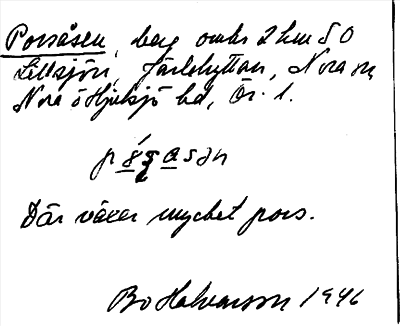 Porsåsen, berg omkr 2 km SO
Lillsjön, Järlehyttan, Nora sn
Nora o Hjulsjö hd, Ör. l.
Där växer mycket pors.
Bo Halvarson 1946